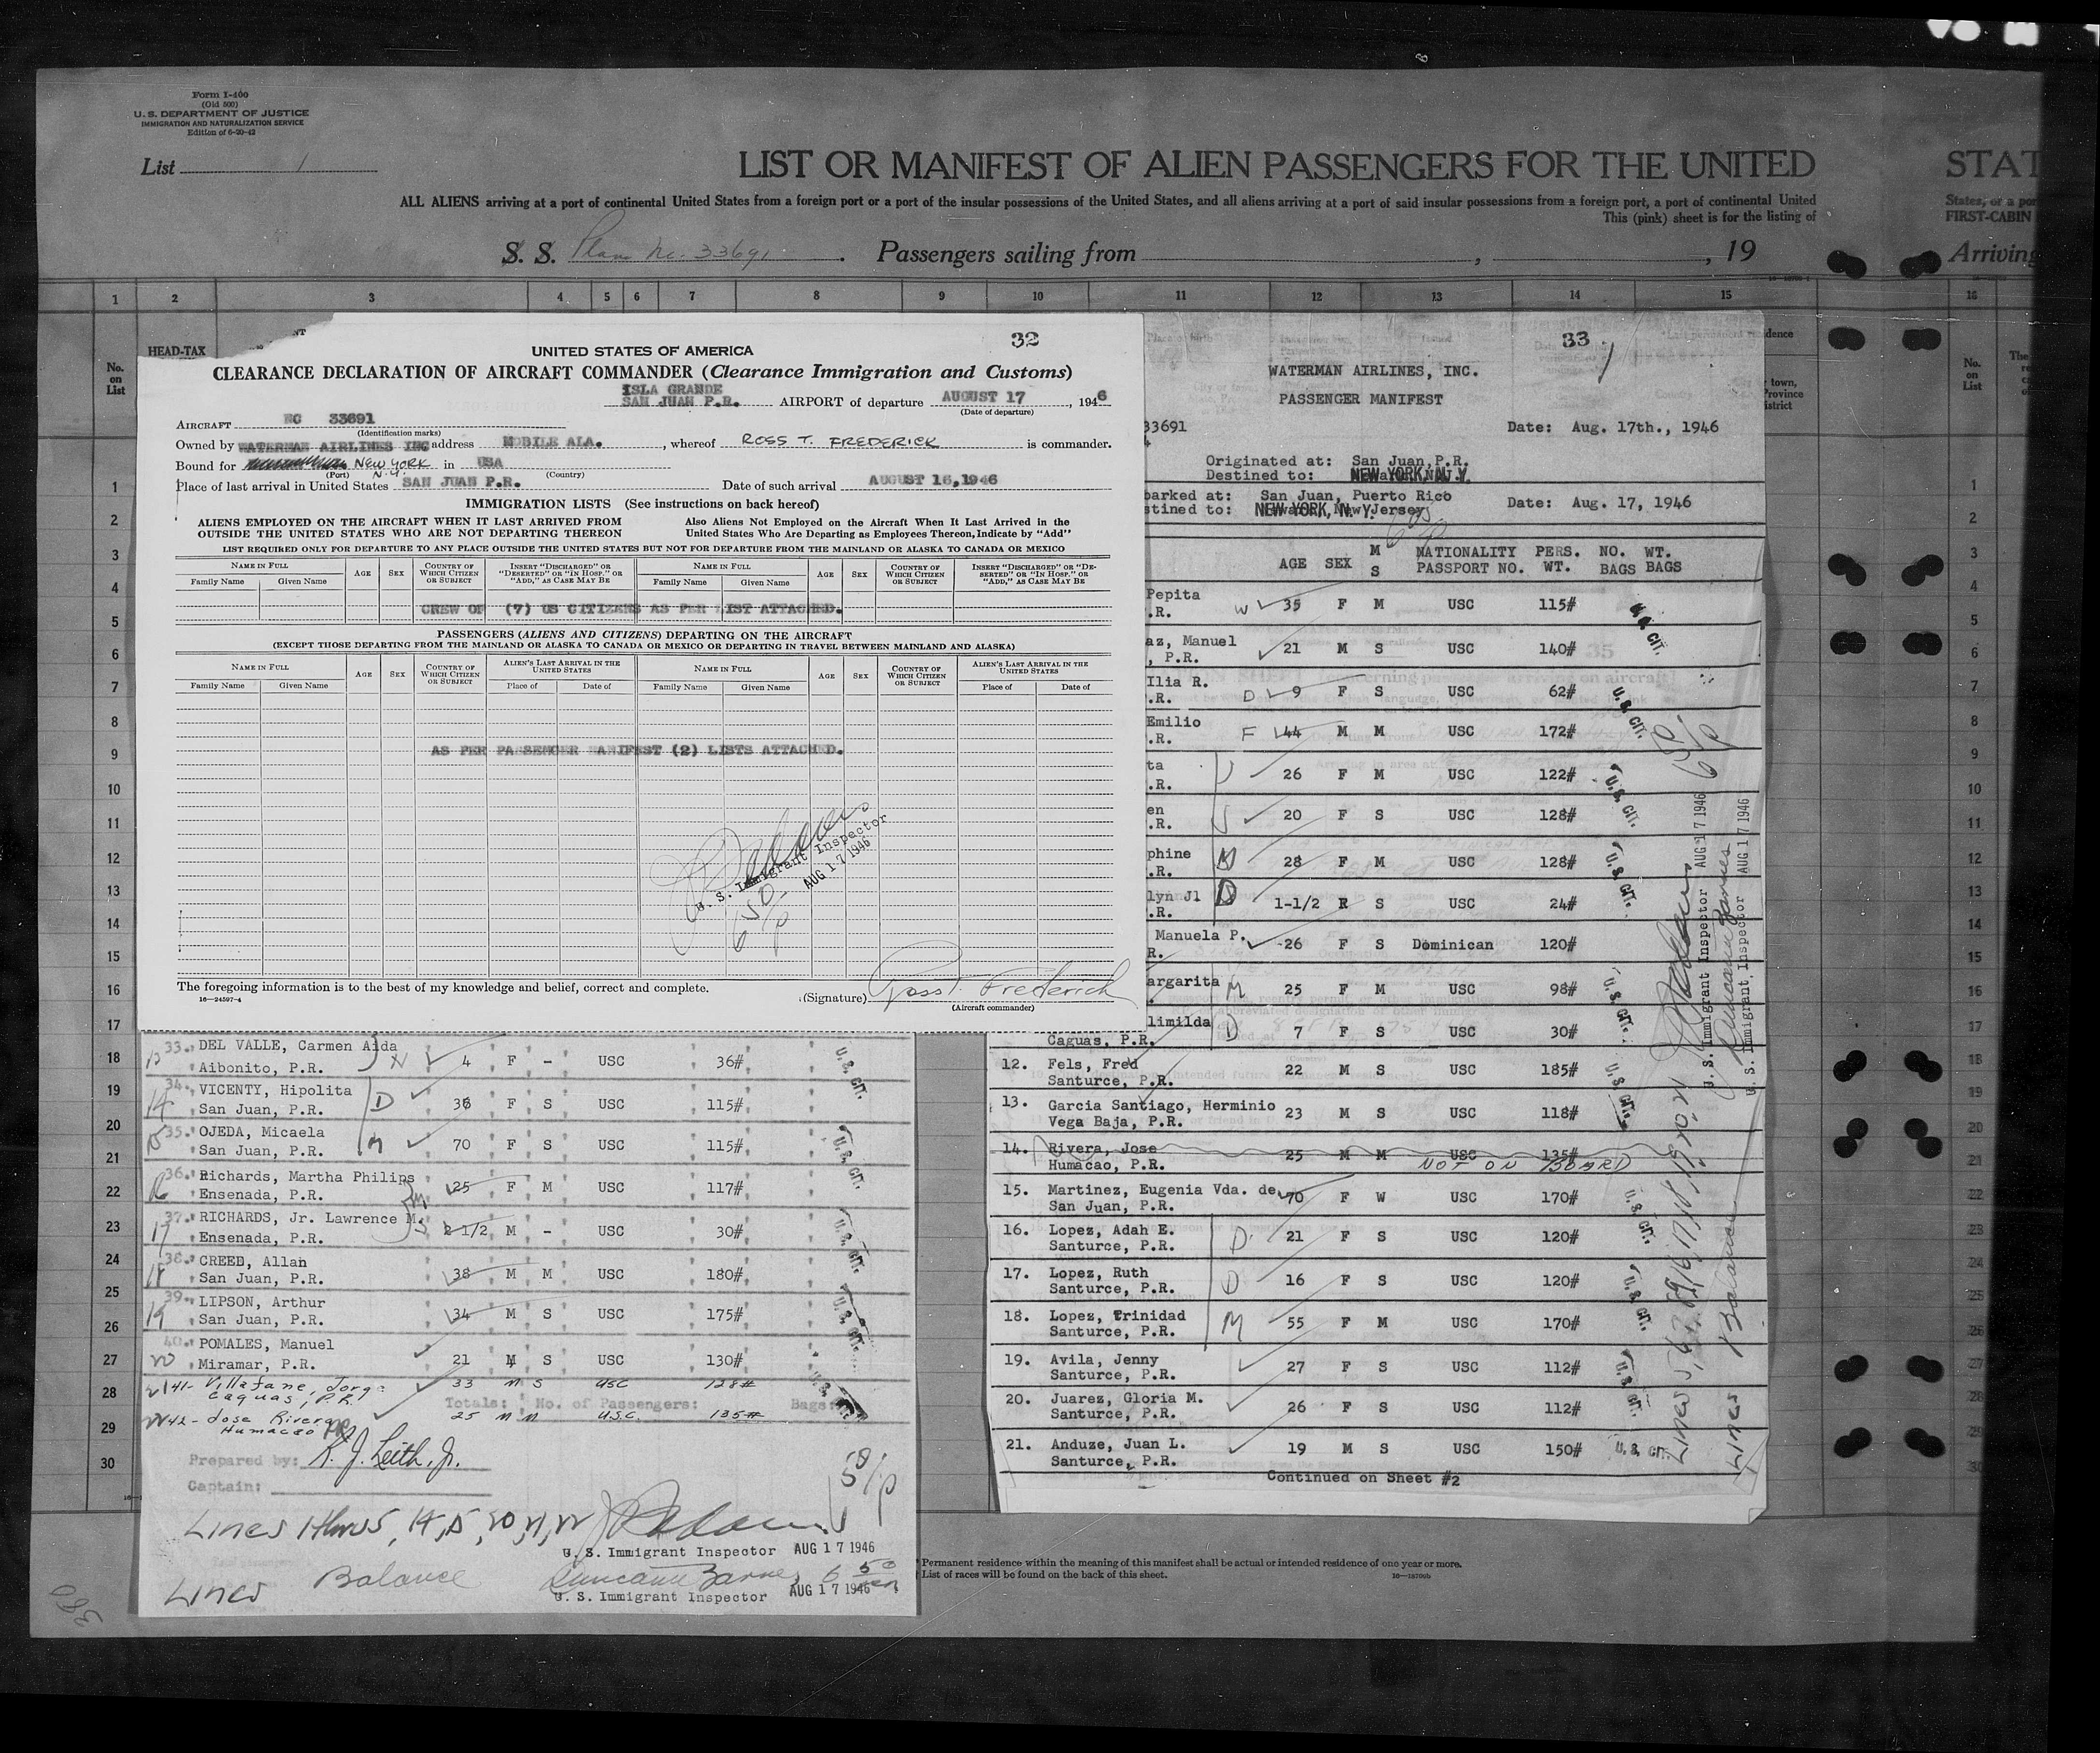 Form I-400
(Old 500)
U. S. DEPARTMENT OF JUSTICE
IMMIGRATION AND NATURALIZATION SERVICE
Edition of 6-20-42
List 1
LIST OR MANIFEST OF ALIEN PASSENGERS FOR THE UNITED
STAT
ALL ALIENS arriving at a port of continental United States from a foreign port or a port of the insular possessions of the United States, and all aliens arriving at a port of said insular possessions from a foreign port, a port of continental United
States, or a por
This (pink) sheet is for the listing of
FIRST-CABIN
S. S. Plane No. 33691. Passengers sailing from , , 19
Arriving
1 2 3 4 5 6 7 8 9 10 11 12 13 14 15 16
HEAD-TAX
No. on List
32
UNITED STATES OF AMERICA
CLEARANCE DECLARATION OF AIRCRAFT COMMANDER (Clearance Immigration and Customs)
ISLA GRANDE
SAN JUAN P.R. AIRPORT of departure AUGUST 17, 1946
(Date of departure)
AIRCRAFT NC 33691
(Identification marks)
Owned by WATERMAN AIRLINES INC address MOBILE ALA., whereof ROSS T. FREDERICK is commander.
Bound for NEW YORK N.Y. in USA
(Port) (Country)
Place of last arrival in United States SAN JUAN P.R. Date of such arrival AUGUST 16,1946
IMMIGRATION LISTS (See instructions on back hereof)
ALIENS EMPLOYED ON THE AIRCRAFT WHEN IT LAST ARRIVED FROM
OUTSIDE THE UNITED STATES WHO ARE NOT DEPARTING THEREON
Also Aliens Not Employed on the Aircraft When It Last Arrived in the
United States Who Are Departing as Employees Thereon, Indicate by "Add"
LIST REQUIRED ONLY FOR DEPARTURE TO ANY PLACE OUTSIDE THE UNITED STATES BUT NOT FOR DEPARTURE FROM THE MAINLAND OR ALASKA TO CANADA OR MEXICO
NAME IN FULL AGE SEX COUNTRY OF WHICH CITIZEN OR SUBJECT INSERT "DISCHARGED" OR "DESERTED" OR "IN HOSP." OR "ADD," AS CASE MAY BE NAME IN FULL AGE SEX COUNTRY OF WHICH CITIZEN OR SUBJECT INSERT "DISCHARGED" OR "DESERTED" OR "IN HOSP." OR "ADD," AS CASE MAY BE
Family Name Given Name Family Name Given Name
CREW OF (7) US CITIZENS AS PER LIST ATTACHED.
PASSENGERS (ALIENS AND CITIZENS) DEPARTING ON THE AIRCRAFT
(EXCEPT THOSE DEPARTING FROM THE MAINLAND OR ALASKA TO CANADA OR MEXICO OR DEPARTING IN TRAVEL BETWEEN MAINLAND AND ALASKA)
NAME IN FULL AGE SEX COUNTRY OF WHICH CITIZEN OR SUBJECT ALIEN'S LAST ARRIVAL IN THE UNITED STATES NAME IN FULL AGE SEX COUNTRY OF WHICH CITIZEN OR SUBJECT ALIEN'S LAST ARRIVAL IN THE UNITED STATES
Family Name Given Name Place of Date of Family Name Given Name Place of Date of
AS PER PASSENGER MANIFEST (2) LISTS ATTACHED.
U. S. Immigrant Inspector AUG 17 1946
The foregoing information is to the best of my knowledge and belief, correct and complete.
16—24597-4
(Signature) Ross T. Frederick
(Aircraft commander)
33
WATERMAN AIRLINES, INC.
PASSENGER MANIFEST
33691 Date: Aug. 17th., 1946
Originated at: San Juan,P.R.
Destined to: NEW YORK, N. Y.
barked at: San Juan, Puerto Rico Date: Aug. 17, 1946
stined to: NEW YORK, N. Y.
AGE SEX M S NATIONALITY PASSPORT NO. PERS. WT. NO. BAGS WT. BAGS
Pepita W 35 F M USC 115#
.R.
az, Manuel 21 M S USC 140#
, P.R.
Ilia R. D 9 F S USC 62#
.R.
Emilio F 44 M M USC 172#
.R.
ta 26 F M USC 122#
.R.
en 20 F S USC 128#
.R.
phine 28 F M USC 128#
.R.
lyn Jl D 1-1/2 R S USC 24#
.R.
Manuela P. 26 F S Dominican 120#
R.
argarita M 25 F M USC 98#
limilda D 7 F S USC 30#
Caguas, P.R.
12. Fels, Fred 22 M S USC 185#
Santurce, P.R.
13. Garcia Santiago, Herminio 23 M S USC 118#
Vega Baja, P.R.
14. Rivera, Jose 25 M M USC 135#
Humacao, P.R. NOT ON BOARD
15. Martinez, Eugenia Vda. de 70 F W USC 170#
San Juan, P.R.
16. Lopez, Adah E. D 21 F S USC 120#
Santurce, P.R.
17. Lopez, Ruth D 16 F S USC 120#
Santurce, P.R.
18. Lopez, Trinidad M 55 F M USC 170#
Santurce, P.R.
19. Avila, Jenny 27 F S USC 112#
Santurce, P.R.
20. Juarez, Gloria M. 26 F S USC 112#
Santurce, P.R.
21. Anduze, Juan L. 19 M S USC 150# U. S. CIT.
Santurce, P.R.
Continued on Sheet #2
U. S. Immigrant Inspector AUG 17 1946
U. S. Immigrant Inspector AUG 17 1946
Lines Balance
33. DEL VALLE, Carmen Aida 4 F - USC 36# U.S. CIT.
Aibonito, P.R.
14 34. VICENTY, Hipolita D 36 F S USC 115#
San Juan, P.R.
15 35. OJEDA, Micaela M 70 F S USC 115# U.S. CIT.
San Juan, P.R.
16 36. Richards, Martha Philips 25 F M USC 117#
Ensenada, P.R.
17 37. RICHARDS, Jr. Lawrence M. 2 1/2 M - USC 30# U.S. CIT.
Ensenada, P.R.
18 38. CREED, Allan 38 M M USC 180#
San Juan, P.R.
19 39. LIPSON, Arthur 34 M S USC 175# U.S. CIT.
San Juan, P.R.
20 40. POMALES, Manuel 21 M S USC 130#
Miramar, P.R.
21 41- Villafane, Jorge 33 M S USC 128#
Caguas, P.R.
Totals: No. of Passengers: Bags:
22 42- Jose Rivera 25 M M U.S.C. 135#
Humacao PR
Prepared by: R. J. Leith, Jr.
Captain:
Lines 1 thru 5, 14, 15, 20, 21, 22
U. S. Immigrant Inspector AUG 17 1946
Lines Balance
U. S. Immigrant Inspector AUG 17 1946
Permanent residence within the meaning of this manifest shall be actual or intended residence of one year or more.
List of races will be found on the back of this sheet.